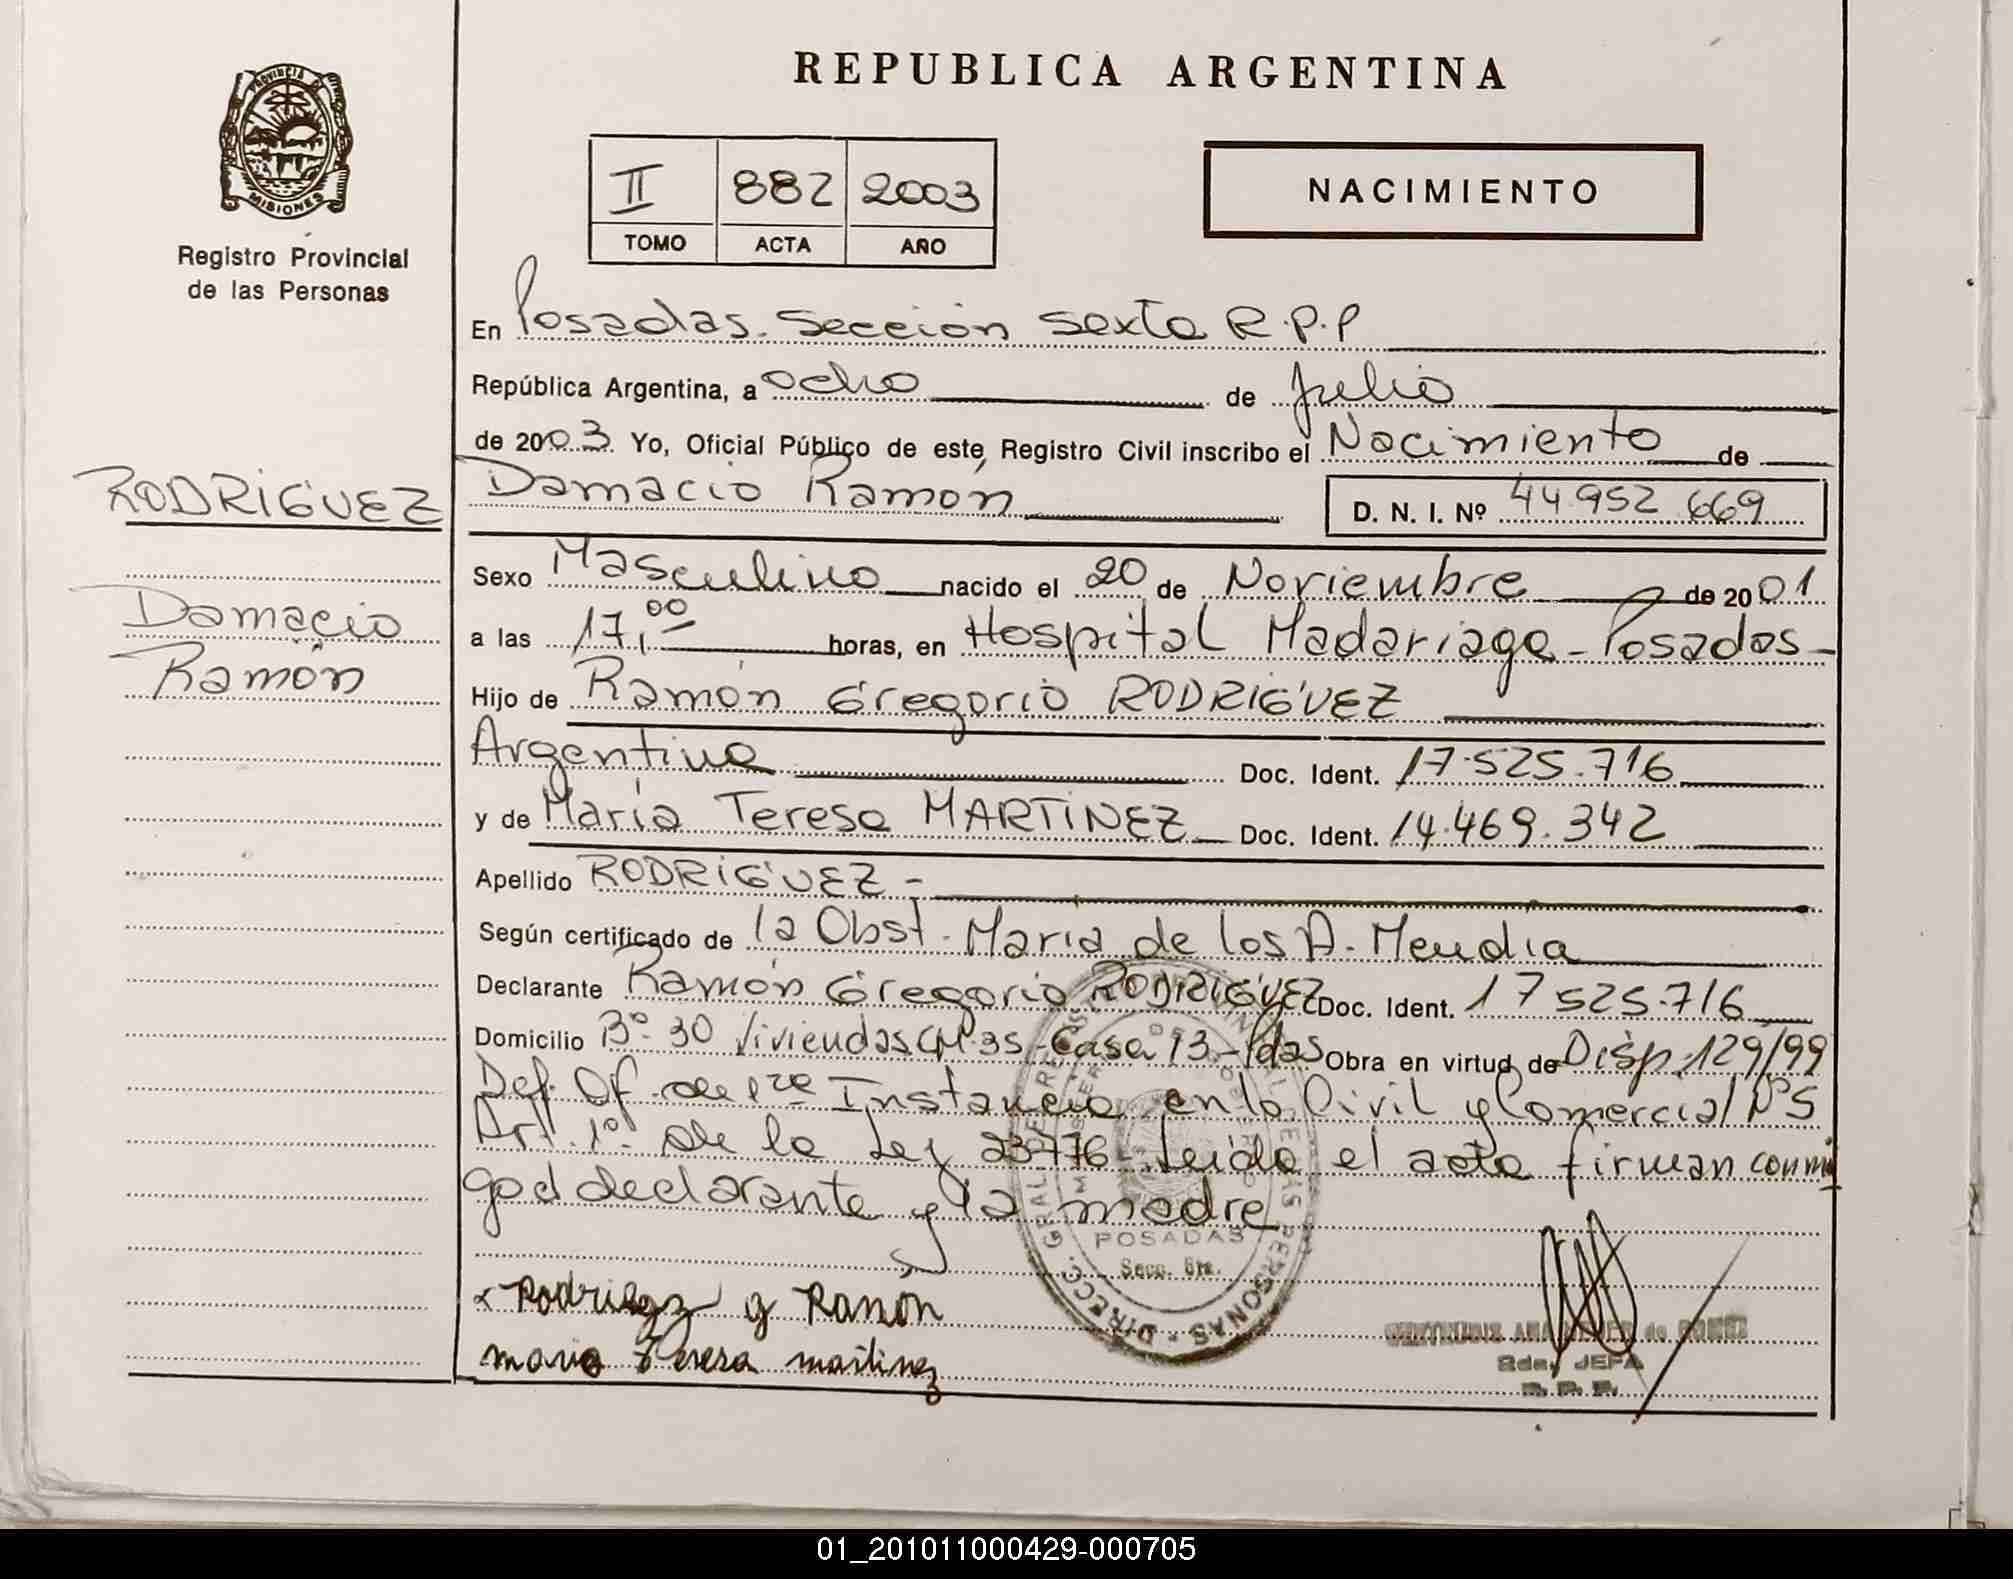 PROVINCIA DE
MISIONES
Registro Provincial
de las Personas
RODRIGUEZ
Damacio
Ramón
REPUBLICA ARGENTINA
II 882 2003
TOMO ACTA AÑO
NACIMIENTO
En Posadas. Sección Sexta R.P.P
República Argentina, a ocho de Julio
de 2003 Yo, Oficial Público de este Registro Civil inscribo el Nacimiento de
Damacio Ramón D. N. I. Nº 44.952.669
Sexo Masculino nacido el 20 de Noviembre de 2001
a las 17,00 horas, en Hospital Madariaga - Posadas -
Hijo de Ramón Gregorio RODRIGUEZ
Argentina Doc. Ident. 17.525.716
y de María Teresa MARTINEZ Doc. Ident. 14.469.342
Apellido RODRIGUEZ -
Según certificado de la Obst. María de los A. Mendia
Declarante Ramón Gregorio RODRIGUEZ Doc. Ident. 17 525.716
Domicilio Bº 30 Viviendas CH. 35 - Casa 13 - Pdas Obra en virtud de Disp. 129/99
Def. Of. de 1ra Instancia en lo Civil y Comercial Nº 5
Art. 1º de la Ley 23776 - Leida el acta firman conmi
go el declarante y la madre
POSADAS
Secc. 6ta.
Rodriguz g Ramón
maria Teresa martinez
Sda. JEFA
R. P. P.
01_201011000429-000705